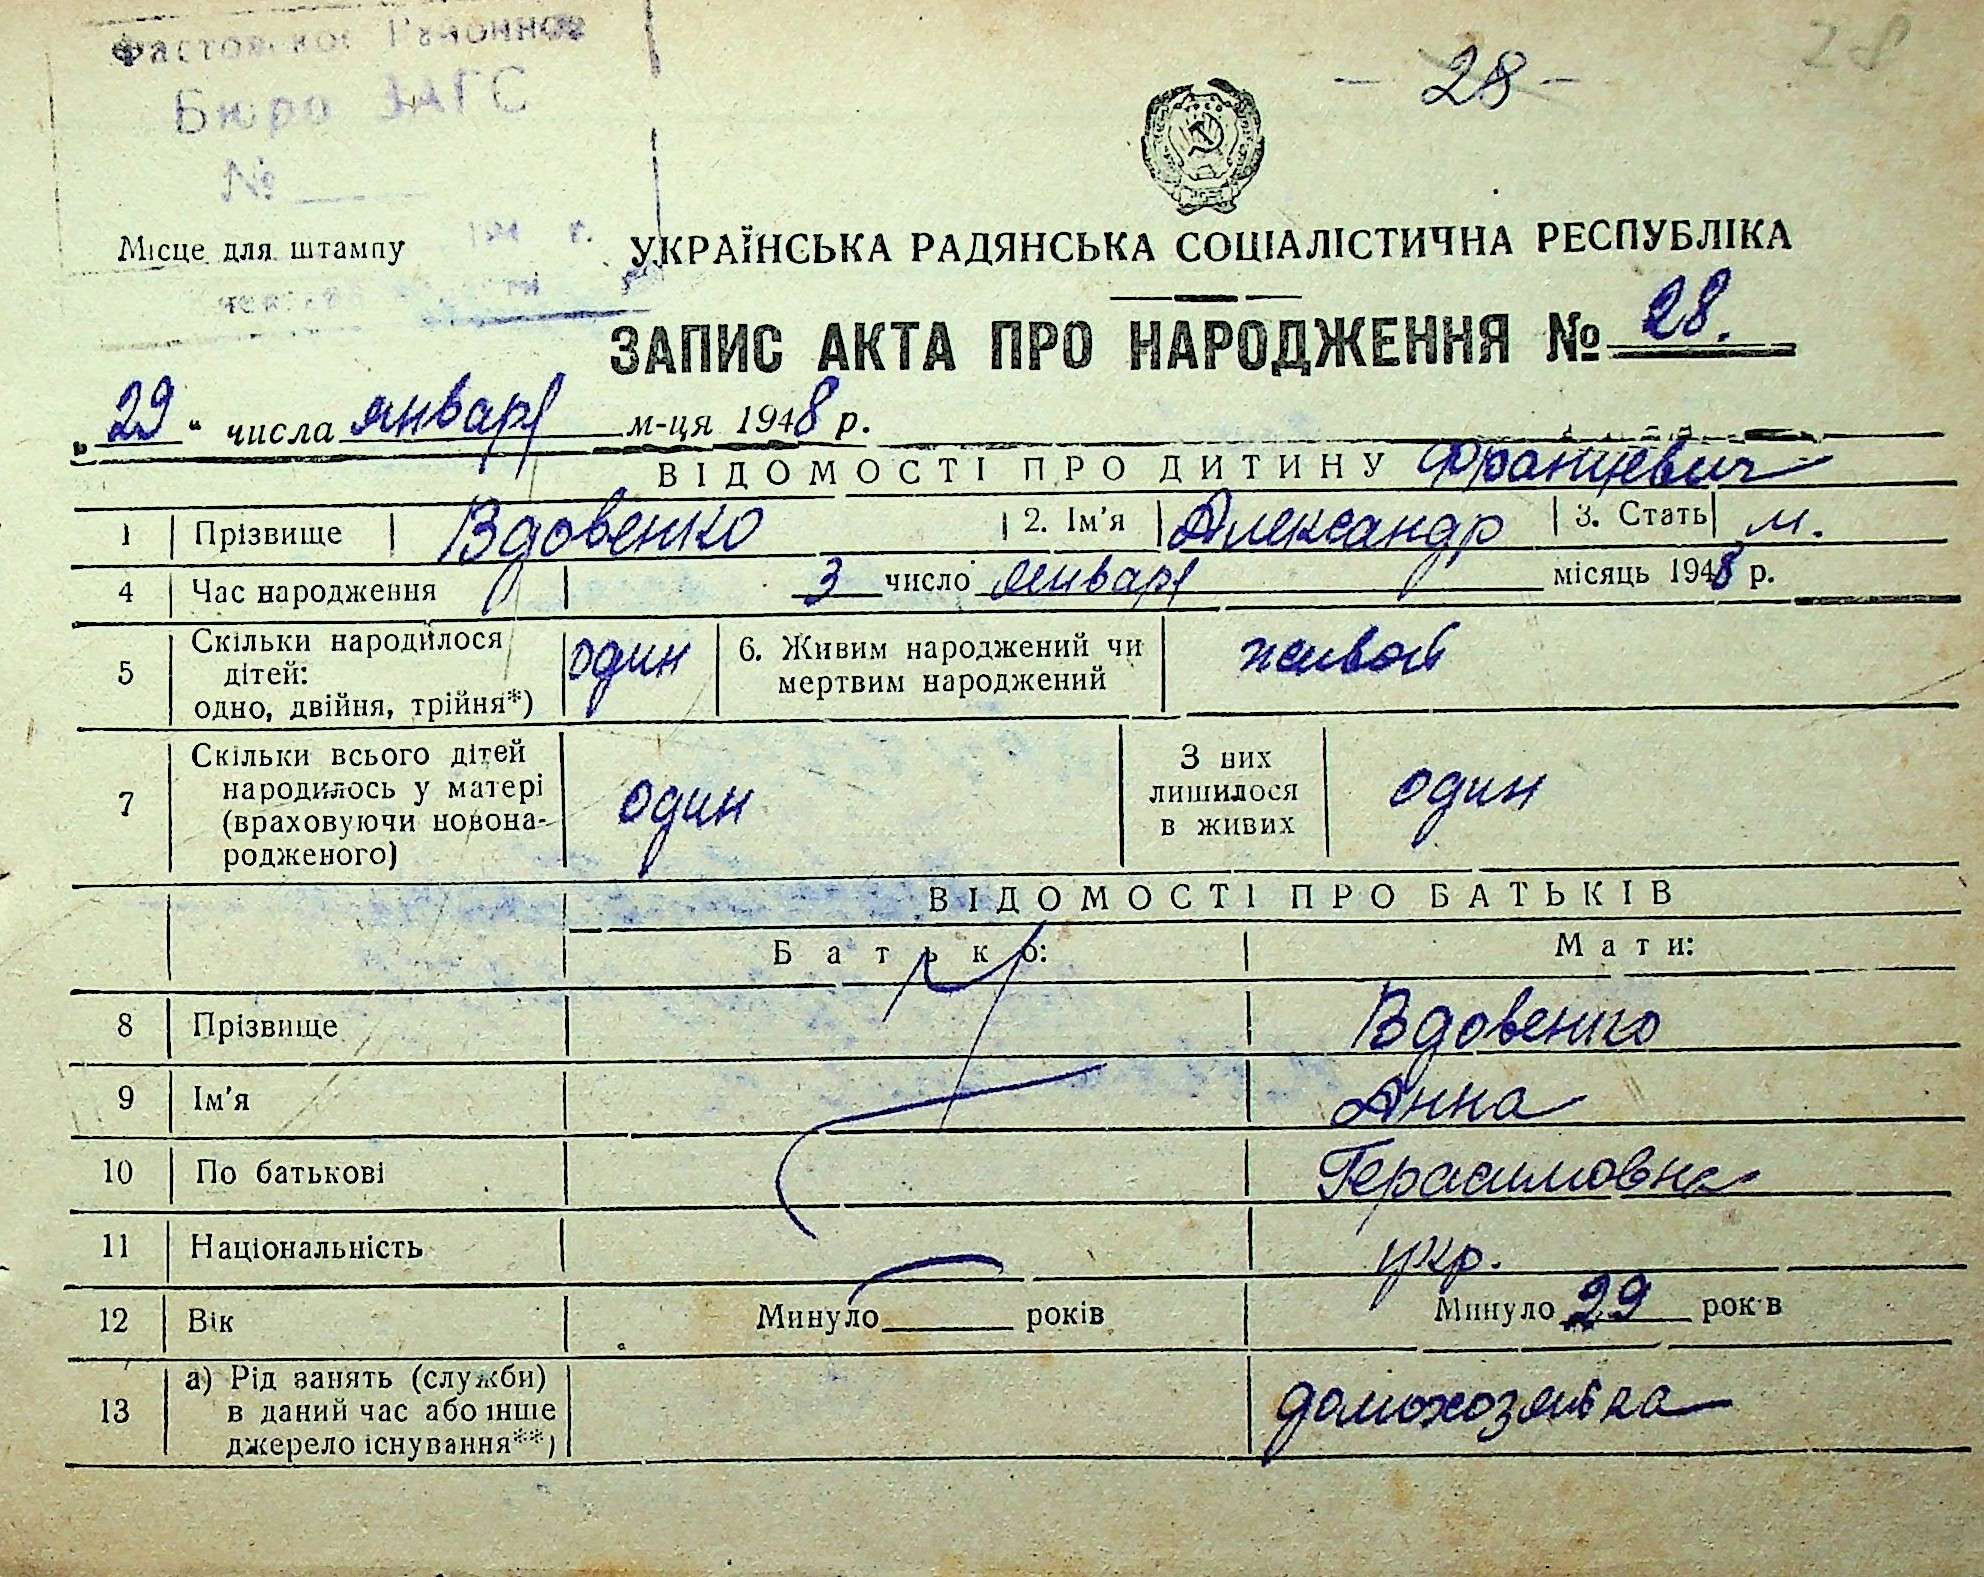 28
- 28 -
Районное
Бюро ЗАГС
№
Місце для штампу
УКРАЇНСЬКА РАДЯНСЬКА СОЦІАЛІСТИЧНА РЕСПУБЛІКА
ЗАПИС АКТА ПРО НАРОДЖЕННЯ № 28.
„29“ числа января м-ця 1948 р.
ВІДОМОСТІ ПРО ДИТИНУ Францевич
1 Прізвище Вдовенко 2. Ім'я Александр 3. Стать м.
4 Час народження 3 число января місяць 1948 р.
5 Скільки народилося дітей: одно, двійня, трійня*) один 6. Живим народжений чи мертвим народжений живой
7 Скільки всього дітей народилось у матері (враховуючи новонародженого) один З них лишилося в живих один
ВІДОМОСТІ ПРО БАТЬКІВ
Батько: Мати:
8 Прізвище Вдовенко
9 Ім'я Анна
10 По батькові Герасимовна
11 Національність укр.
12 Вік Минуло років Минуло 29 років
13 а) Рід занять (служби) в даний час або інше джерело існування**) домохозяйка